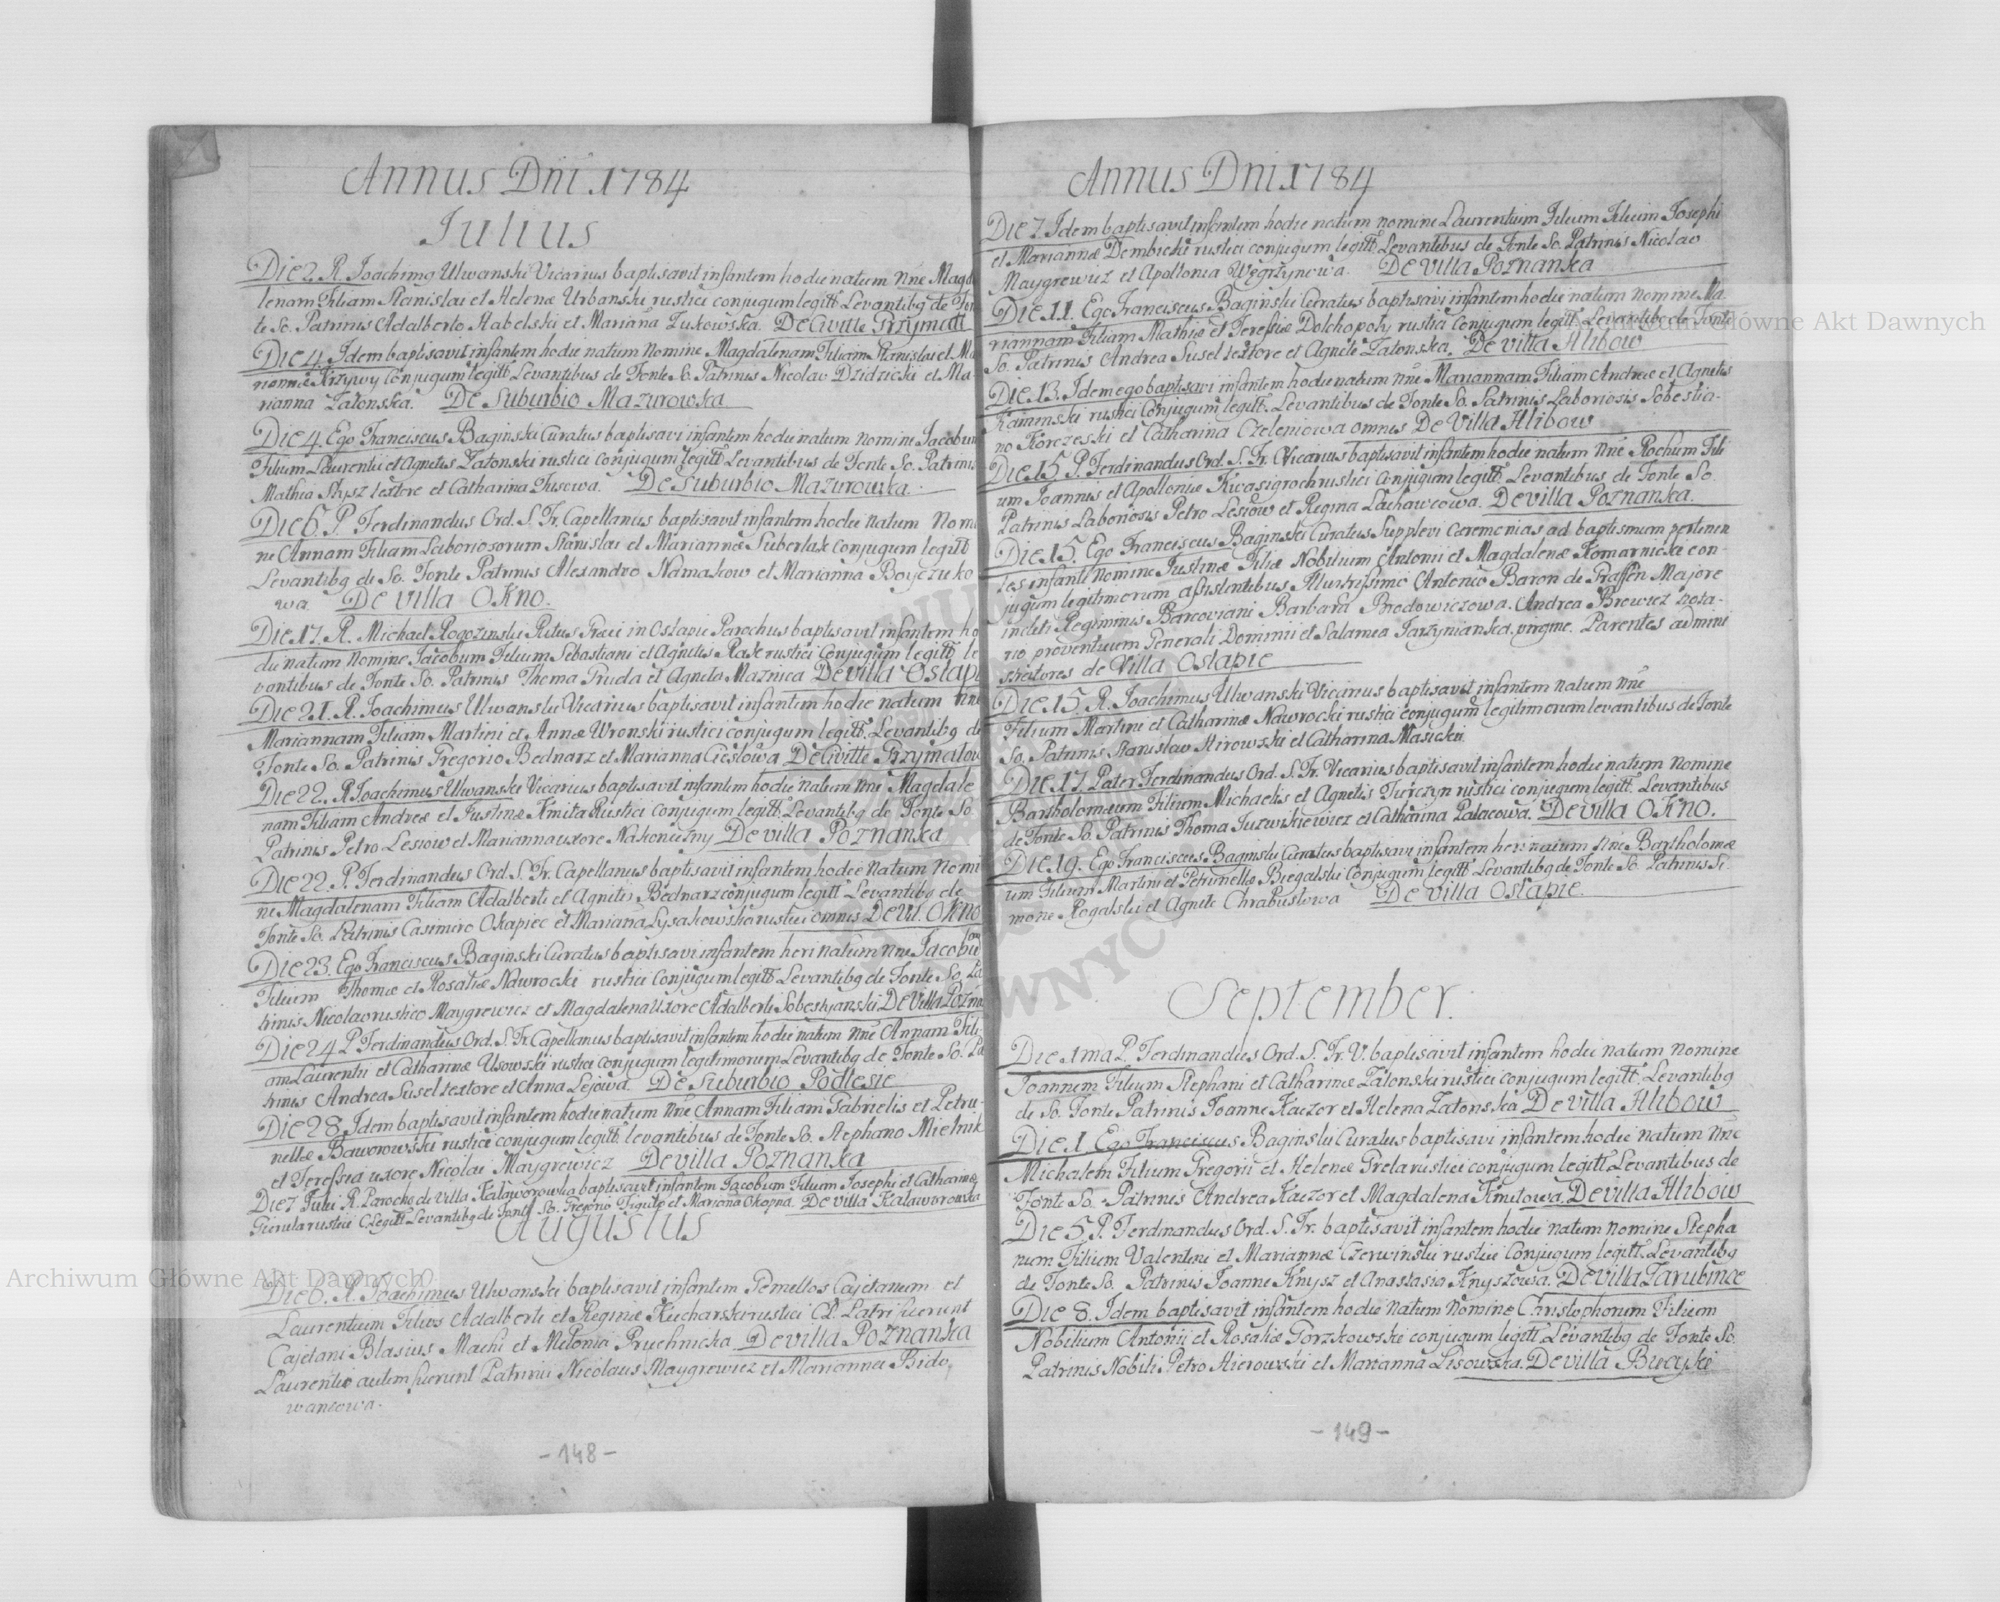 Annus Dni 1784
Iulius
Die 2. R. Joachimg Ulwanski Vicarius baptisavit infantem hodie natum Nne Magda
lenam Filiam Stanislai et Helenæ Urbanski rustici conjugum legitt. Levantibg de Fon
te So. Patrinis Adalberto et Marianna Zukowska. De Civitte Grzymall
Die 4. Idem baptisavit infantem hodie natum Nomine Magdalenam Filiam Stanislai et Ma
riannæ Krzywy Conjugum legitt. Levantibus de Fonte So. Patrinis Nicolao Dzidzicki et Ma
rianna Zatonska. De Suburbio Mazurowska
Die 4. Ego Franciscus Baginski Curatus baptisavi infantem hodie natum nomine Jacobum
Filium Laurentii et Agnetis Zatonski rustici conjugum legitt. Levantibus de Fonte So. Patrinis
Mathia textore et Catharina. De Suburbio Mazurowska.
Die 6. P. Ferdinandus Ord. S. Fr. Capellanus baptisavit infantem hodie natum Nomi
ne Annam Filiam Laboriosorum Stanislai et Mariannæ Suberlak conjugum legitt
Levantibg de So. Fonte Patrinis Alexandro Namakow et Marianna Boyczuko
wa. De villa Okno.
Die 17. R. Michael Rogozinski Ritus Græci in Ostapie Parochus baptisavit infantem ho
die natum Nomine Jacobum Filium Sebastiani et Agnetis Rak rustici Conjugum legitt. le
vantibus de Fonte So. Patrinis Thoma Gruda et Agneta Maznica De villa Ostapi
Die 21. R. Joachimus Ulwanski Vicarius baptisavit infantem hodie natum Nne
Mariannam Filiam Martini et Annæ Wronski rustici conjugum legitt. Levantibg de
Fonte So. Patrinis Gregorio Bednarz et Marianna Cieslowa De Civitte Grzymalow
Die 22. R. Joachimus Ulwanski Vicarius baptisavit infantem hodie natum Nne Magdale
nam Filiam Andreæ et Justinæ Kmita Rustici conjugum legitt. Levantibg de Fonte So
Patrinis Petro Lesiow et Marianna uxore Nakonieczny De villa Poznanka
Die 22. P. Ferdinandus Ord. S. Fr. Capellanus baptisavit infantem hodie natum Nomi
ne Magdalenam Filiam Adalberti et Agnetis Bednarz conjugum legitt Levantibg de
Fonte So. Patrinis Casimiro Okapiec et Mariana Lysakowska rustici omnes De Vil. Okno
Die 23. Ego Franciscus Baginski Curatus baptisavi infantem heri natum Nne Jacobum
Filium Thomæ et Rosaliæ Nawrocki rustici Conjugum legitt. Levantibg de Fonte So. Pa
trinis Nicolao rustico Maygrewicz et Magdalena Uxore Adalberti Sobestyanski De Villa Pozna
Die 24 P. Ferdinandus Ord. S. Fr. Capellanus baptisavit infantem hodie natum Nne Annam Fili
am Laurentii et Catharinæ Usowski rustici conjugum legitimorum Levantibg de Fonte So. Pa
trinis Andrea Susel textore et Anna Lejowa. De Suburbio Podlesie
Die 28. Idem baptisavit infantem hodie natum Nne Annam Filiam Gabrielis et Petro-
nellæ Baworowski rustici conjugum legitt. levantibus de Fonte So. Stephano Mielnik
et Teressia uxore Nicolai Maygrewicz De villa Poznanka
Die 7 Julii R. Parochs de villa Kalaworowka baptisavit infantem Jacobum Filium Josephi et Catharinæ
rustici C. legitt. Levantibg de Fonte So. Gregorio et Mariana Okopna. De Villa Kalaworowka
Augustus
Die 6. R. Joachimus Ulwanski baptisavit infantem Gemellos Cajetanum et
Laurentium Filios Adalberti et Reginæ Kucharski rustici C.L. Patri fuerunt
Cajetani Blasius Machi et Melonia Pruchnicka. De villa Poznanka
Laurentii autem fuerunt Patrini Nicolaus Maygrewicz et Marianna Bido,
wancowa.
-148-
Annus Dni 1784
Die 7. Idem baptisavit infantem hodie natum nomine Laurentium Filium Filium Josephi
et Mariannæ Dembicki rustici conjugum legitt. Levantibus de Fonte So. Patrinis Nicolao
Maygrewicz et Apollonia Węgrzynowa. De villa Poznanka
Die 11. Ego Franciscus Baginski Curatus baptisavi infantem hodie natum Nomine Ma
riannam Filiam Mathiæ et Teressiæ Dolchopoly rustici Conjugum legitt. Levantibg de Fonte
So. Patrinis Andrea Susel textore et Agnete Zatonska. De villa Hlibow
Die 13. Idem ego baptisavi infantem hodie natum Nne Mariannam Filiam Andreæ et Agnetis
Kaminski rustici Conjugum legitt. Levantibus de Fonte So. Patrinis Laboriosis Sobestia-
no Korczeski et Catharina Czeleniowa omnes De Villa Hlibow
Die 15 P. Ferdinandus Ord. S. Fr. Vicarius baptisavit infantem hodie natum Nne Rochum Fili
um Joannis et Apolloniæ Kwasigroch rustici Conjugum legitt. Levantibus de Fonte So.
Patrinis Laboriosis Petro Lesiow et Regina Lachawcowa. De villa Poznanka.
Die 15. Ego Franciscus Baginski Curatus Supplevi Ceremonias ad baptismum pertinen
tes infanti Nomine Justinæ Filiæ Nobilium Antonii et Magdalenæ Komarnicka con-
jugum legitimorum assistentibus Illustrissimo Antonio Baron de Graffen Majore
incliti Regiminis Barcoviani Barbara Brodowiczowa. Andrea Browicz nota-
rio proventuum Generali Dominii et Salomea Jarzynianska virgine. Parentes admini
stratores de Villa Ostapie
Die 15. R. Joachimus Ulwanski Vicarius baptisavit infantem natum Nne
Filium Martini et Catharinæ Nawrocki rustici conjugum legitimorum levantibus de Fonte
So. Patrinis Stanislao Hirowski et Catharina Masicki
Die 17. Pater Ferdinandus Ord. S. Fr. Vicarius baptisavit infantem hodie natum nomine
Bartholomæum Filium Michaelis et Agnetis Turczyn rustici conjugum legitt. Levantibus
de Fonte So. Patrinis Thoma et Catharina Palacowa. De villa Okno.
Die 19. Ego Franciscus Baginski Curatus baptisavi infantem heri natum Nne Bartholomæ
um Filium Martini et Petronellæ Biegalski Conjugum legitt Levantibg de Fonte So. Patrinis Si-
mone Rogalski et Agnete Chrabustowa De villa Ostapie.
September.
Die 1ma P. Ferdinandus Ord. S. Fr. V. baptisavit infantem hodie natum Nomine
Joannem Filium Stephani et Catharinæ Zatonski rustici conjugum legitt. Levantibg
de So. Fonte Patrinis Joanne Kaczor et Helena Zatonska De villa Hlibow
Die 1 Ego Franciscus Baginski Curatus baptisavi infantem hodie natum Nne
Michalem Filium Gregorii et Helenæ Grela rustici conjugum legitt. Levantibus de
Fonte So. Patrinis Andrea Kaczor et Magdalena Knutowa. De villa Hlibow
Die 5. P. Ferdinandus Ord. S. Fr. baptisavit infantem hodie natum nomine Stepha
num Filium Valentini et Mariannæ Czerwinski rustici Conjugum legitt. Levantibg
de Fonte So. Patrinis Joanne Knysz et Anastasia Knyszowa. De villa Zarubince
Die 8. Idem baptisavit infantem hodie natum Nomine Christophorum Filium
Nobilium Antonii et Rosaliæ Gorzkowski conjugum legitt. Levantibg de Fonte So.
Patrinis Nobili Petro Hierowski et Marianna Lisowska. De villa Bucyki
-149-
Archiwum Główne Akt Dawnych
Archiwum Główne Akt Dawnych